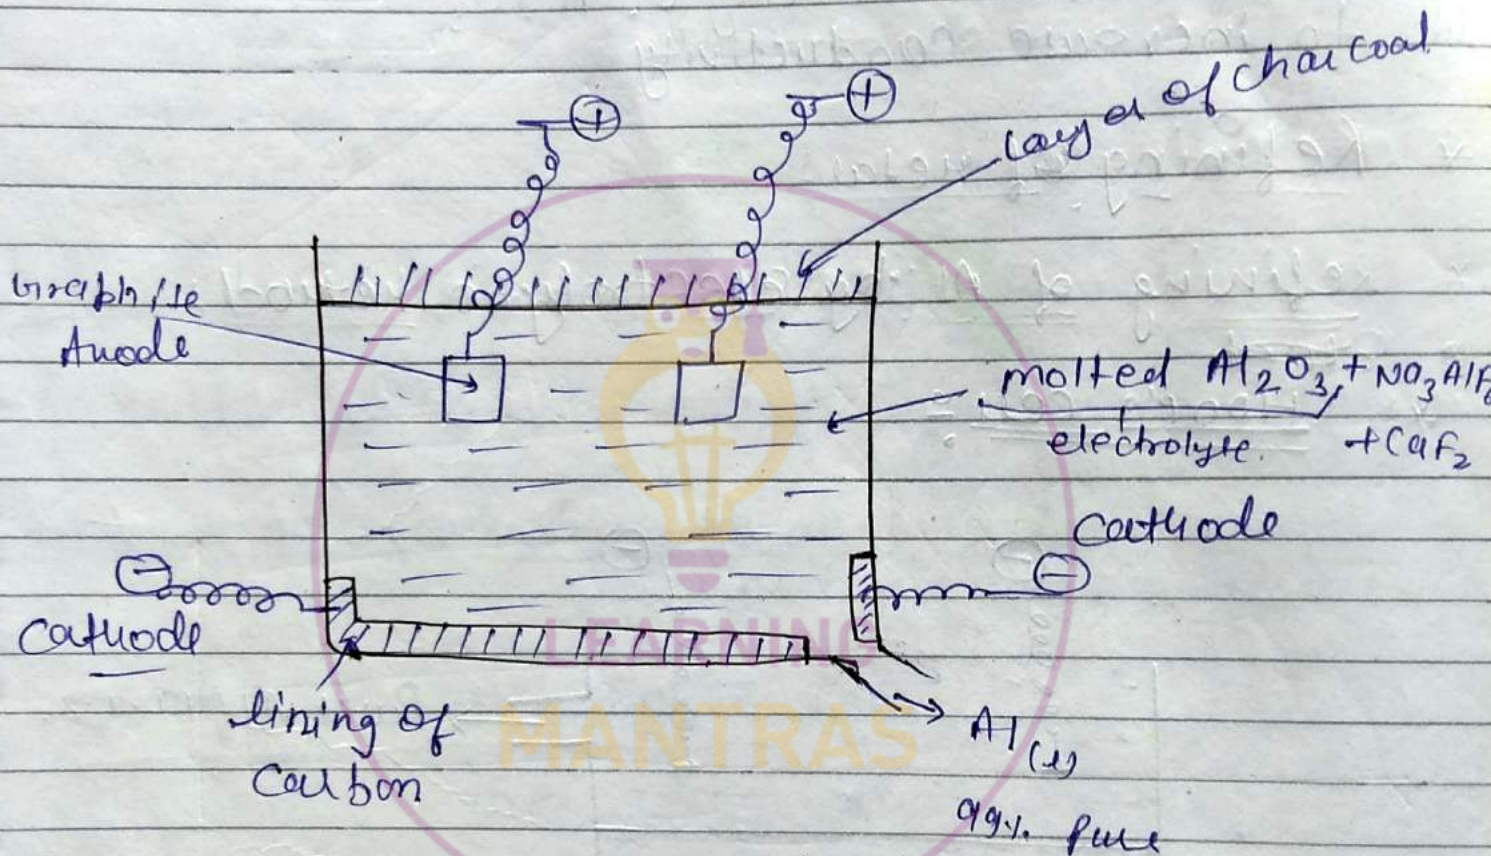 layer of charcoal
Graphite
Anode
molted Al₂O₃ + Na₃AlF₆
electrolyte. + CaF₂
Cathode
Cathode
lining of
Carbon
Al (l)
99% Pure
LEARNING
MANTRAS